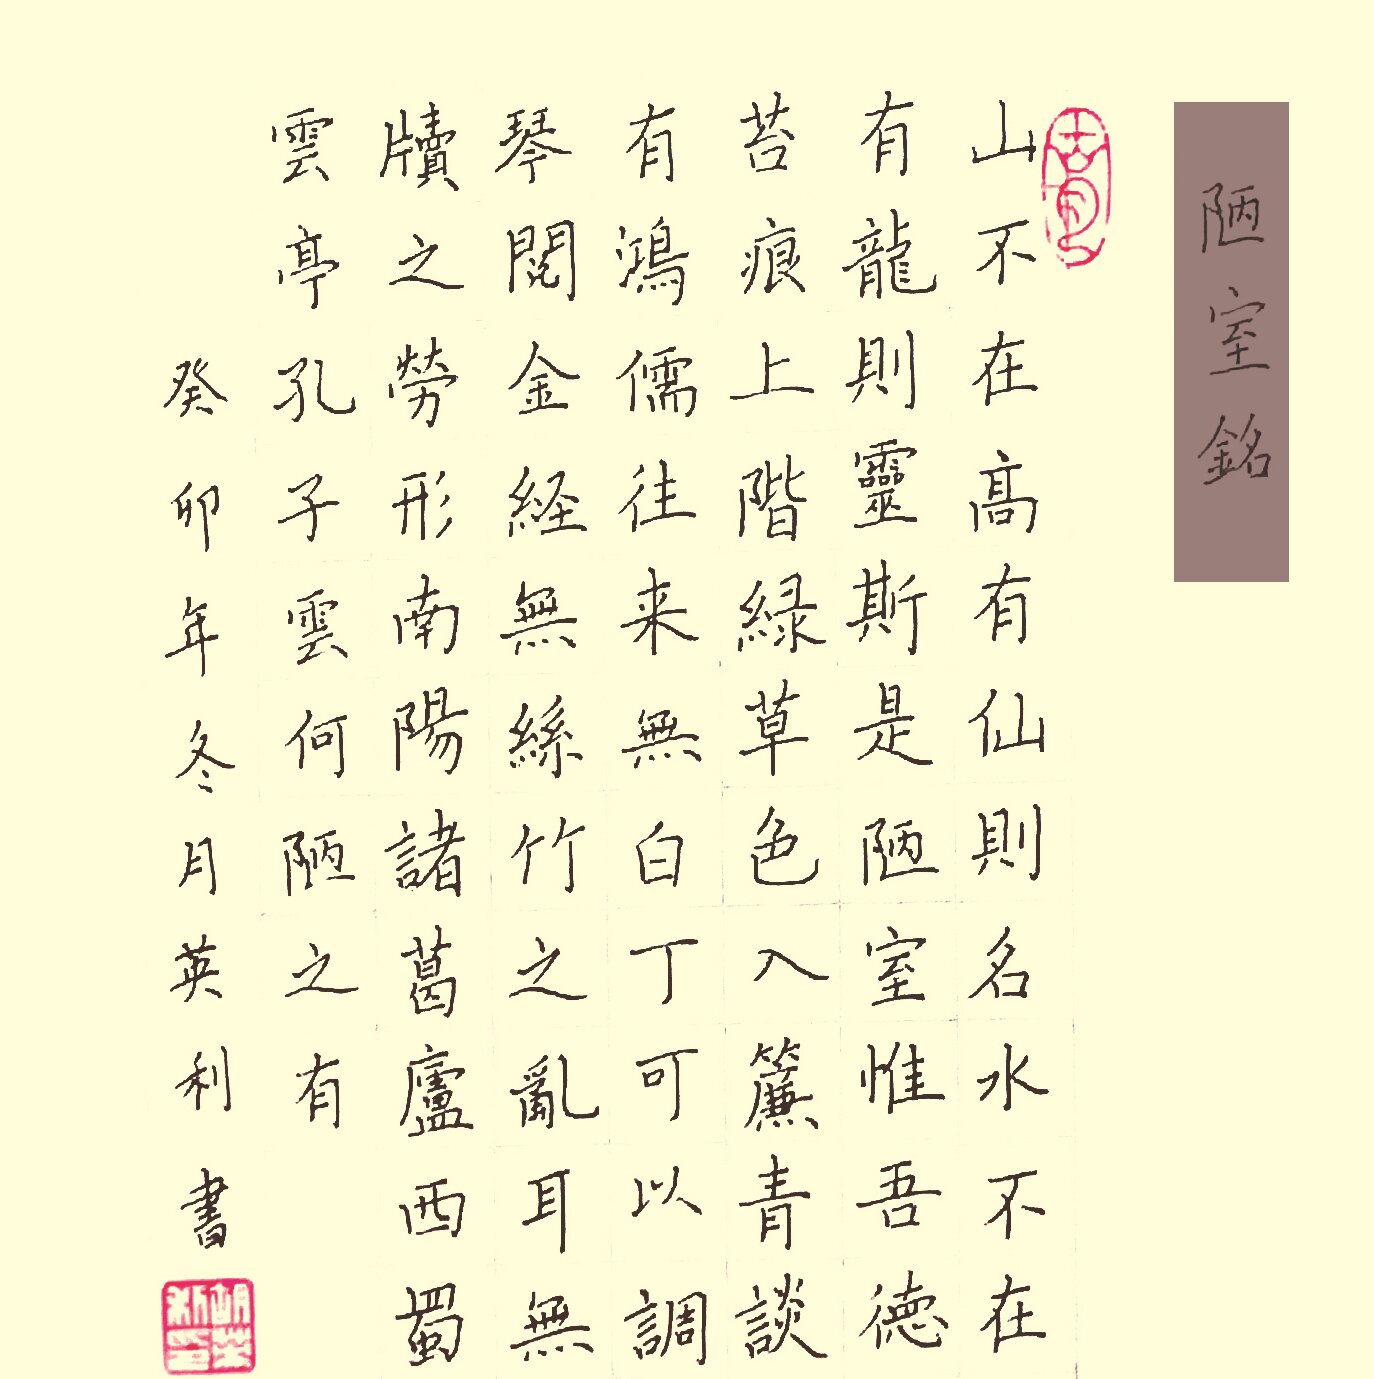 陋室銘
山不在高有仙則名水不在
有龍則靈斯是陋室惟吾德
苔痕上階緑草色入簾青談
有鴻儒往来無白丁可以調
琴閲金経無絲竹之亂耳無
牘之勞形南陽諸葛廬西蜀
雲亭孔子雲何陋之有
癸卯年冬月英利書